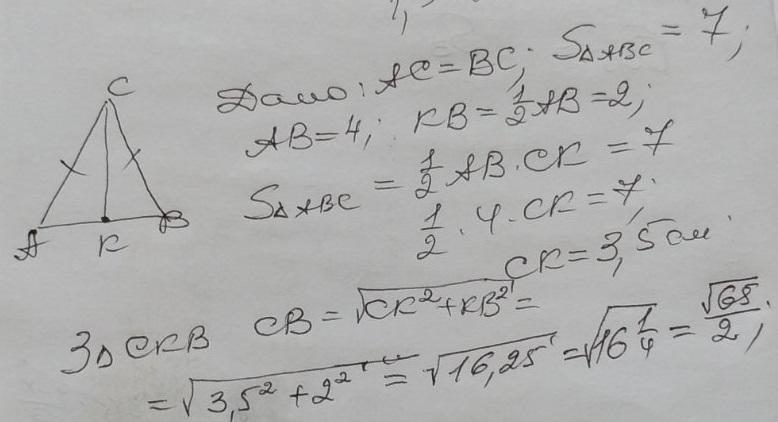 Дано: AC = BC; S△ABC = 7;
AB = 4; KB = 1/2 AB = 2;
S△ABC = 1/2 AB · CK = 7
1/2 · 4 · CK = 7;
CK = 3,5 см.
C
A K B
З △ CKB CB = √(CK² + KB²) =
= √(3,5² + 2²) = √16,25 = √(16 1/4) = √65/2;